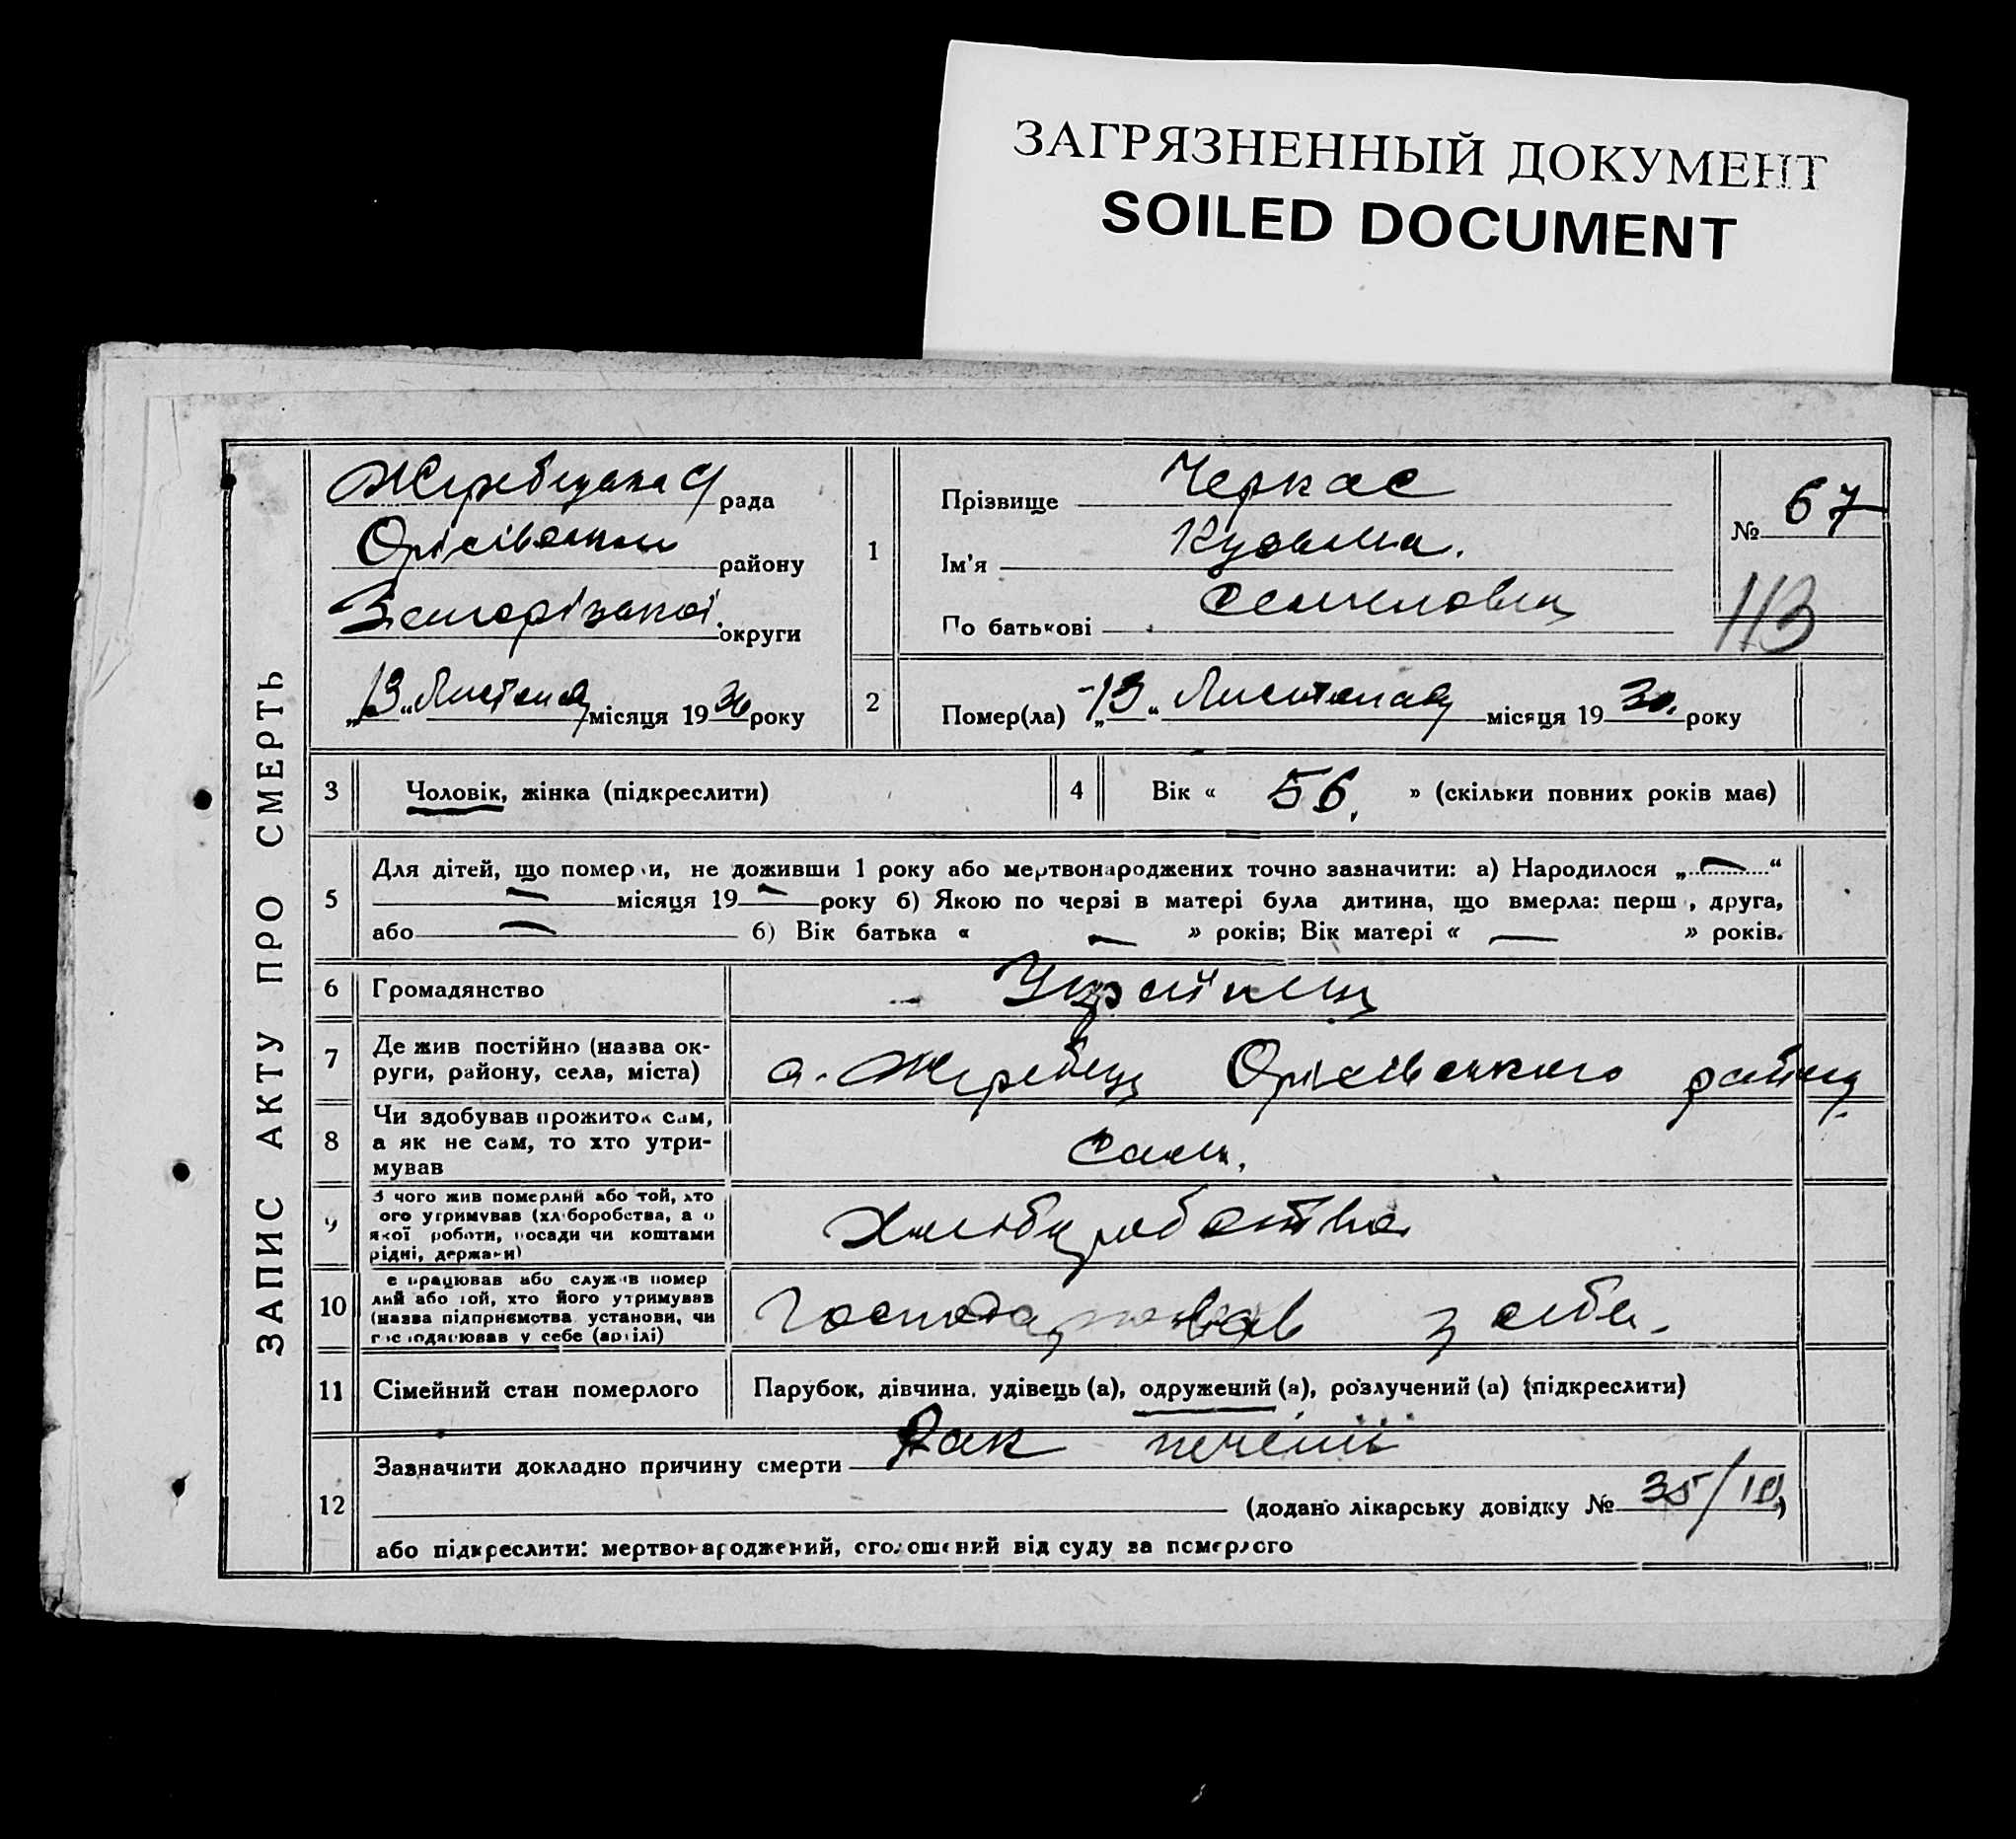 ЗАГРЯЗНЕННЫЙ ДОКУМЕНТ
SOILED DOCUMENT
ЗАПИС АКТУ ПРО СМЕРТЬ
рада
району
Запорізької округи
„13“ Листопад місяця 1930 року
1
Прізвище Черкас
Ім'я Кузьма.
По батькові
№ 67
113
2
Помер(ла) „13“ Листопаду місяця 1930. року
3 Чоловік, жінка (підкреслити)
4 Вік « 56. » (скільки повних років має)
5
Для дітей, що померли, не доживши 1 року або мертвонароджених точно зазначити: а) Народилося „—“
— місяця 19 — року б) Якою по черзі в матері була дитина, що вмерла: перш, друга,
або — б) Вік батька « — » років; Вік матері « — » років.
6 Громадянство Українець
7
Де жив постійно (назва ок-
руги, району, села, міста)
с. Жеребець Оріхівського району.
8
Чи здобував прожиток сам,
а як не сам, то хто утри-
мував
Сам.
9
З чого жив померлий або той, хто
ого утримував (хліборобства, а о
якої роботи, посади чи коштами
рідні, держави)
10
е працював або служив помер
лий або той, хто його утримував
(назва підприємства установи, чи
господарював у себе (артілі)
Господарював у себе.
11 Сімейний стан померлого Парубок, дівчина, удівець (а), одружений (а), розлучений (а) (підкреслити)
12
Зазначити докладно причину смерти Рак печені
(додано лікарську довідку № 35/10)
або підкреслити: мертвонароджений, оголошений від суду за померлого